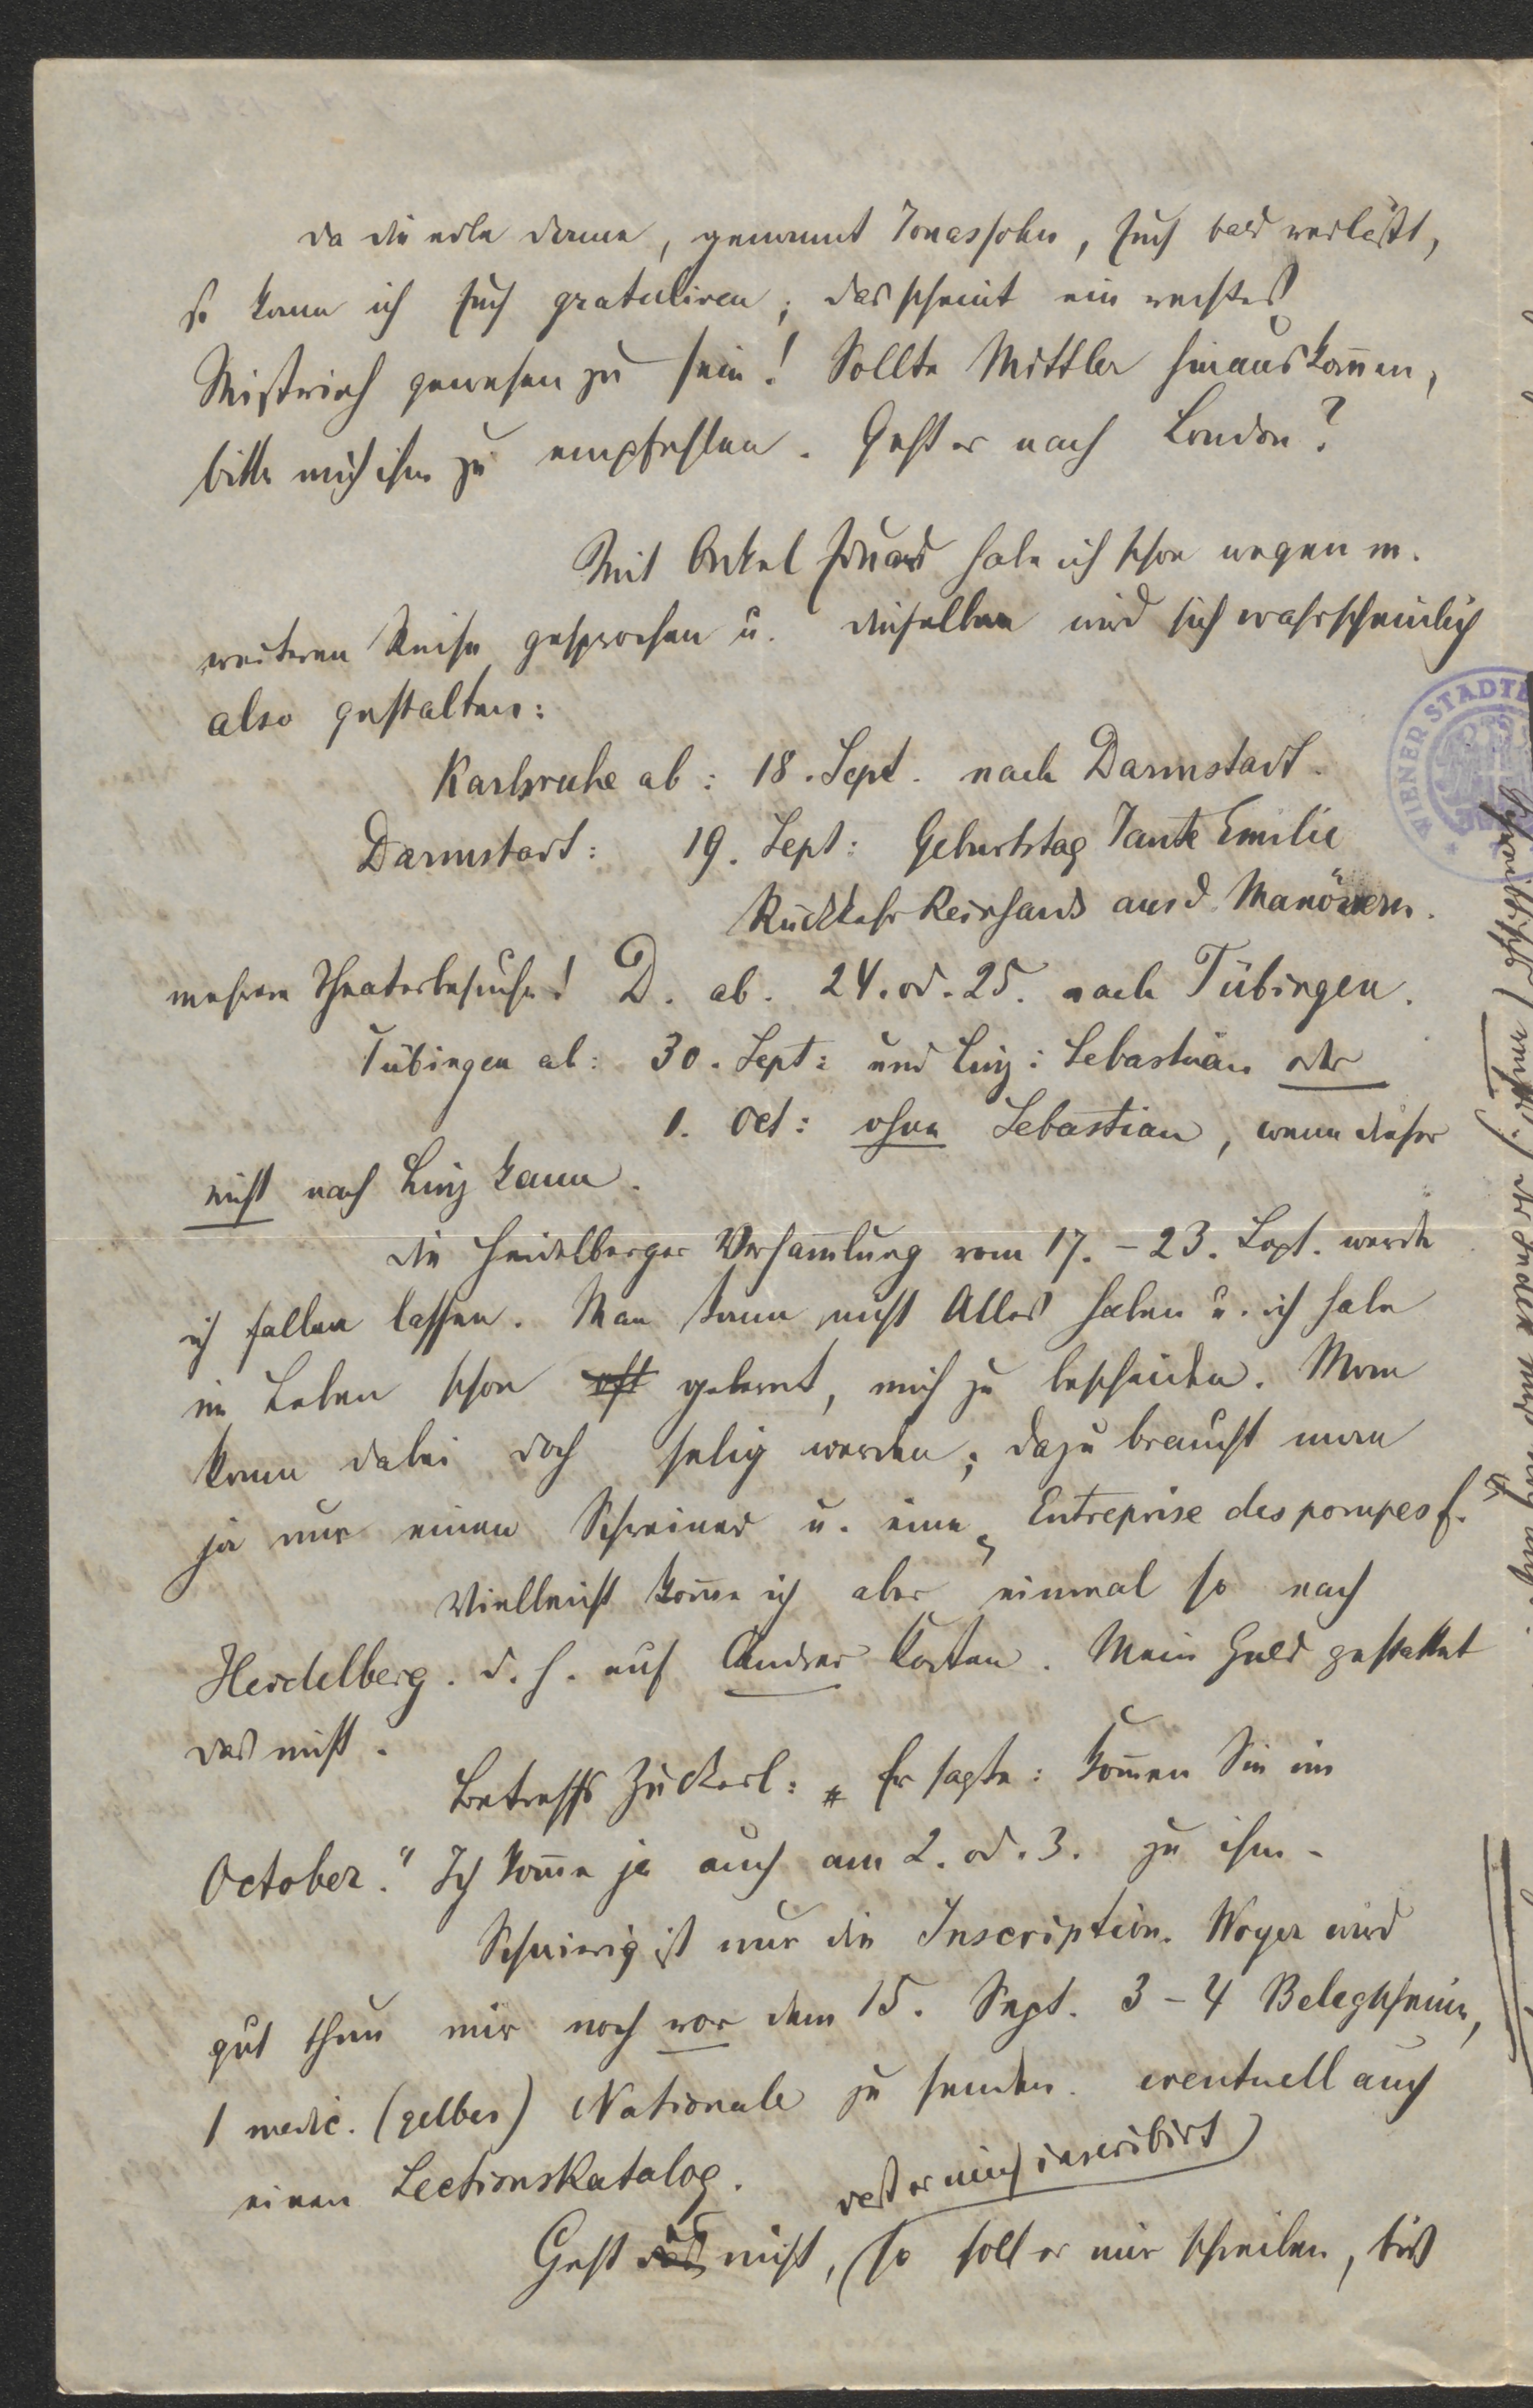 Da die edle Dame, genannt Jonassohn, Euch bald verläßt,
so kann ich Euch gratuliren; das scheint ein rechtes
Mistviech gewesen zu sein! Sollte Mittler hinauskom̅en,
bitte mich ihm zu empfehlen. Geht er nach London?
Mit Onkel Eduard habe ich schon wegen m.
weiteren Reise gesprochen u. dieselbe wird sich wahrscheinlich
also gestalten:
Karlsruhe ab: 18. Sept. nach Darmstadt.
Darmstadt: 19. Sept: Geburtstag Tante Emilie
Rückkehr Reinhards aus d. Manövern.
mehrere Theaterbesuche! D. ab. 24. od. 25. nach Tübingen.
Tübingen ab: 30. Sept: und Linz: Sebastian oder
1. Oct: ohne Sebastian, wenn dieser
nicht nach Linz kann.
Die Heidelberger Versam̅lung vom 17. - 23. Sept. werde
ich fallen lassen. Man kann nicht Alles haben u. ich habe
im Leben schon oft gelernt, mich zu bescheiden. Man
kann dabei doch selig werden; dazu braucht man
ja nur einen Schreiner u. eine „Entreprise des pompes f."
Vielleicht kom̅e ich aber einmal so nach
Heidelberg. d. h. auf Andrer Kosten. Mein Geld gestattet
das nicht.
Betreffs Zuckerl: „Er sagte: Kom̅en Sie im
October." Ich kom̅e ja auch am 2. od. 3. zu ihm -
Schwierig ist nur die Inscription. Woyer wird
gut thun mir noch vor dem 15. Sept. 3 - 4 Belegscheine,
1 medic. (gelbes) Nationale zu senden. eventuell auch
einen Lectionskatalog.
daß er mich inscribirt
Geht es nicht, so soll er mir schreiben, bis
WIENER STADT